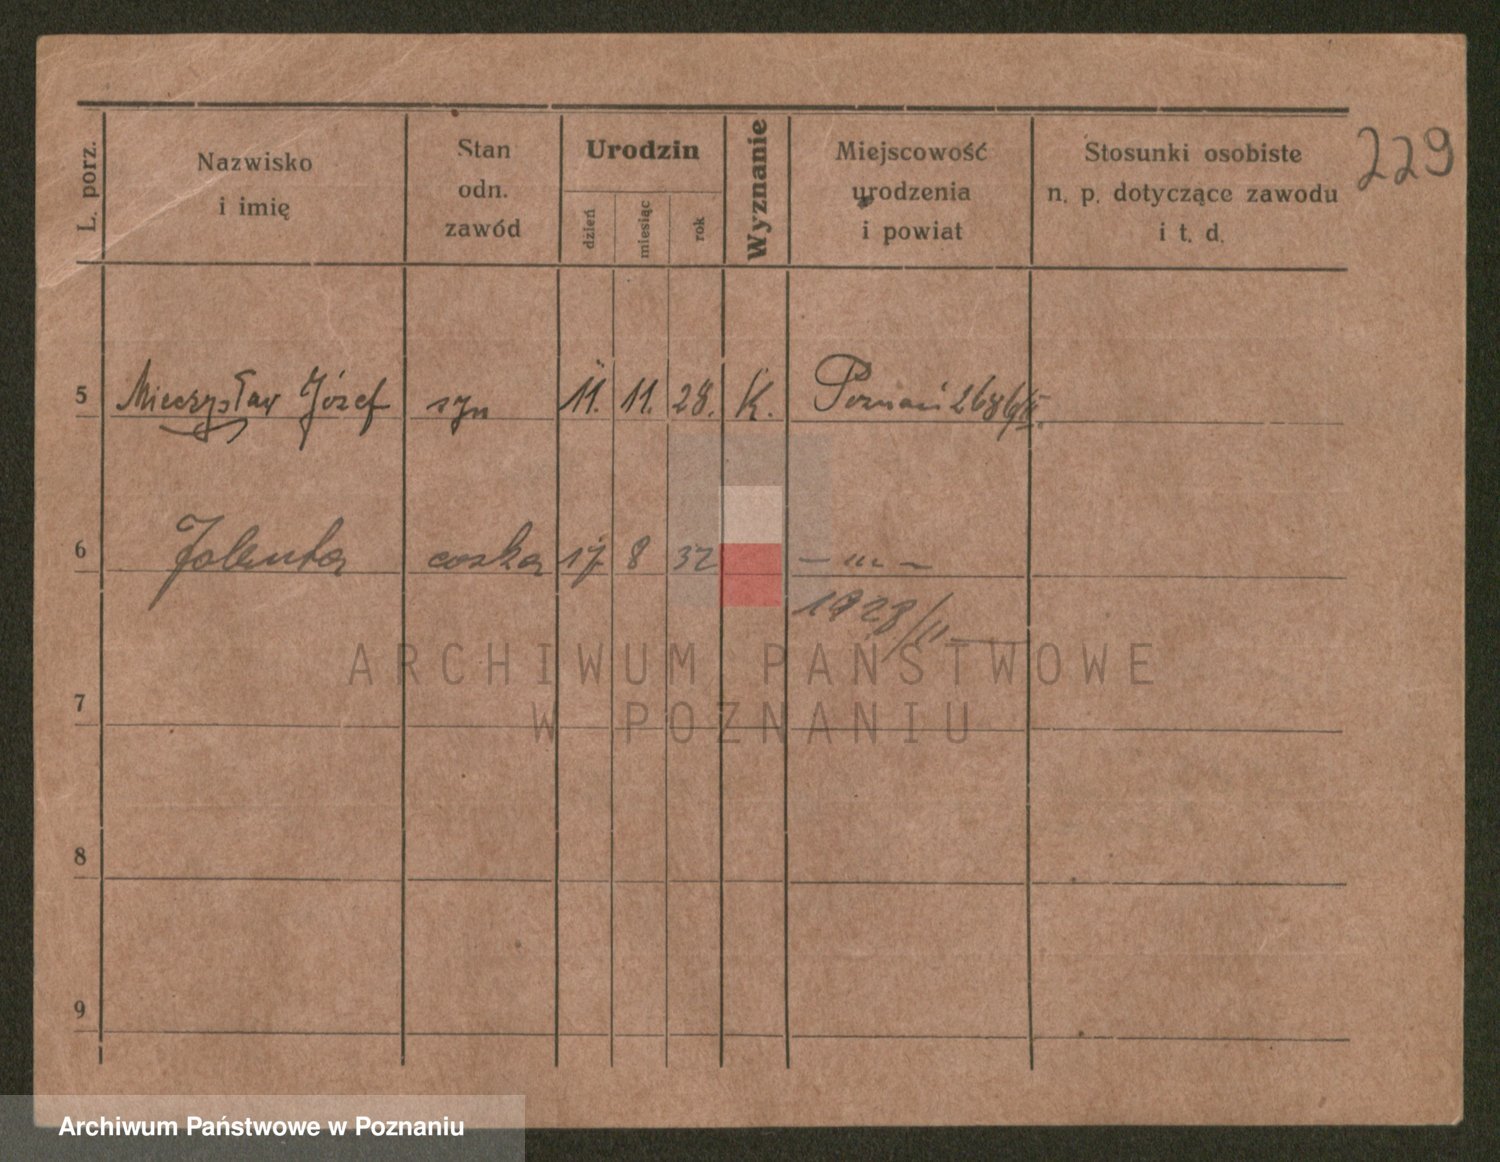 229
L. porz. Nazwisko i imię Stan odn. zawód Urodzin dzień miesiąc rok Wyznanie Miejscowość urodzenia i powiat Stosunki osobiste n. p. dotyczące zawodu i t. d.
5 Mieczysław Józef syn 11. 11. 28. K. Poznań
6 Jolenta corka 17 8 32 — „ —
1928/II
ARCHIWUM PAŃSTWOWE
W POZNANIU
7
8
9
Archiwum Państwowe w Poznaniu